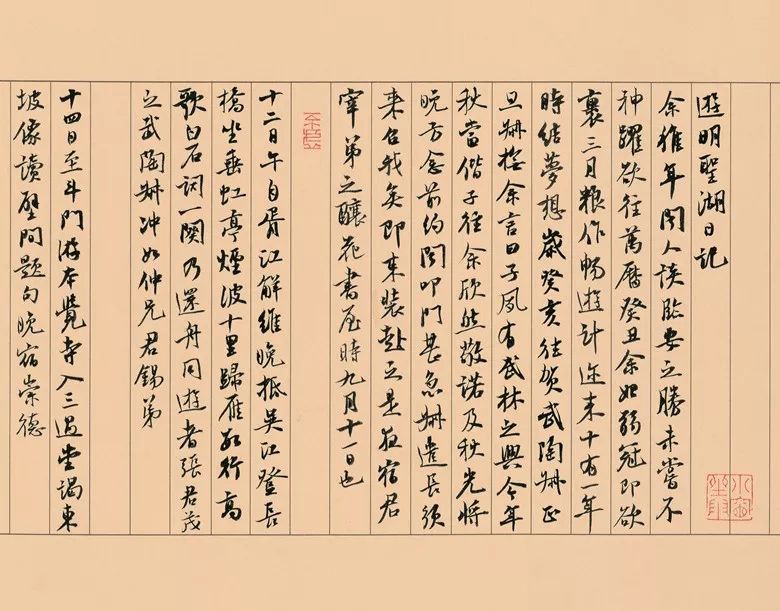 遊明聖湖日記
余稚年聞人談臨安之勝未嘗不
神躍欲往萬曆癸丑余始弱冠即欲
裹三月粮作暢遊計迩来十有一年
時結夢想歲癸亥往賀武陶姊正
旦姊指余言曰子夙有武林之興今年
秋當偕子往余欣然敬諾及秋光将
晚方念前約聞叩門甚急姊遣長須
来召我矣即束裝赴之是夜宿君
宰弟之釀花書屋時九月十一日也
十二日午自胥江解維晚抵吴江登長
橋坐垂虹亭煙波十里歸雁數行高
歌白石詞一闋乃還舟同遊者張君茂
之武陶姊冲如仲兄君錫弟
十四日至斗門游本覺寺入三過堂謁東
坡像讀壁間題句晚宿崇德